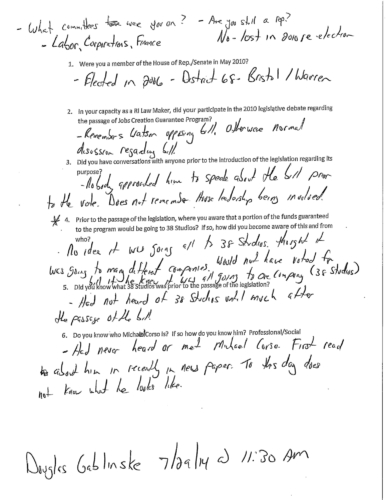 - What committees were you on? - Are you still a rep?
- Labor, Corporations, Finance No - lost in 2010 re-election
1. Were you a member of the House of Rep./Senate in May 2010?
- Elected in 2006 - District 68 - Bristol / Warren
2. In your capacity as a RI Law Maker, did your participate in the 2010 legislative debate regarding
the passage of Jobs Creation Guarantee Program?
- Remembers Watson opposing bill. Otherwise normal
discussion regarding bill.
3. Did you have conversations with anyone prior to the introduction of the legislation regarding its
purpose?
- Nobody approached him to speak about the bill prior
to the vote. Does not remember House leadership being involved.
* 4. Prior to the passage of the legislation, where you aware that a portion of the funds guaranteed
to the program would be going to 38 Studios? If so, how did you become aware of this and from
who?
- No idea it was going all to 38 Studios, thought it
was going to many different companies. Would not have voted for
bill if he knew it was all going to one company (38 Studios)
5. Did you know what 38 Studios was prior to the passage of the legislation?
- Had not heard of 38 Studios until much after
the passage of the bill.
6. Do you know who Michael Corso is? If so how do you know him? Professional/Social
- Had never heard or met Michael Corso. First read
about him in recently in news paper. To this day does
not know what he looks like.
Douglas Gablinske 7/29/14 @ 11:30 AM